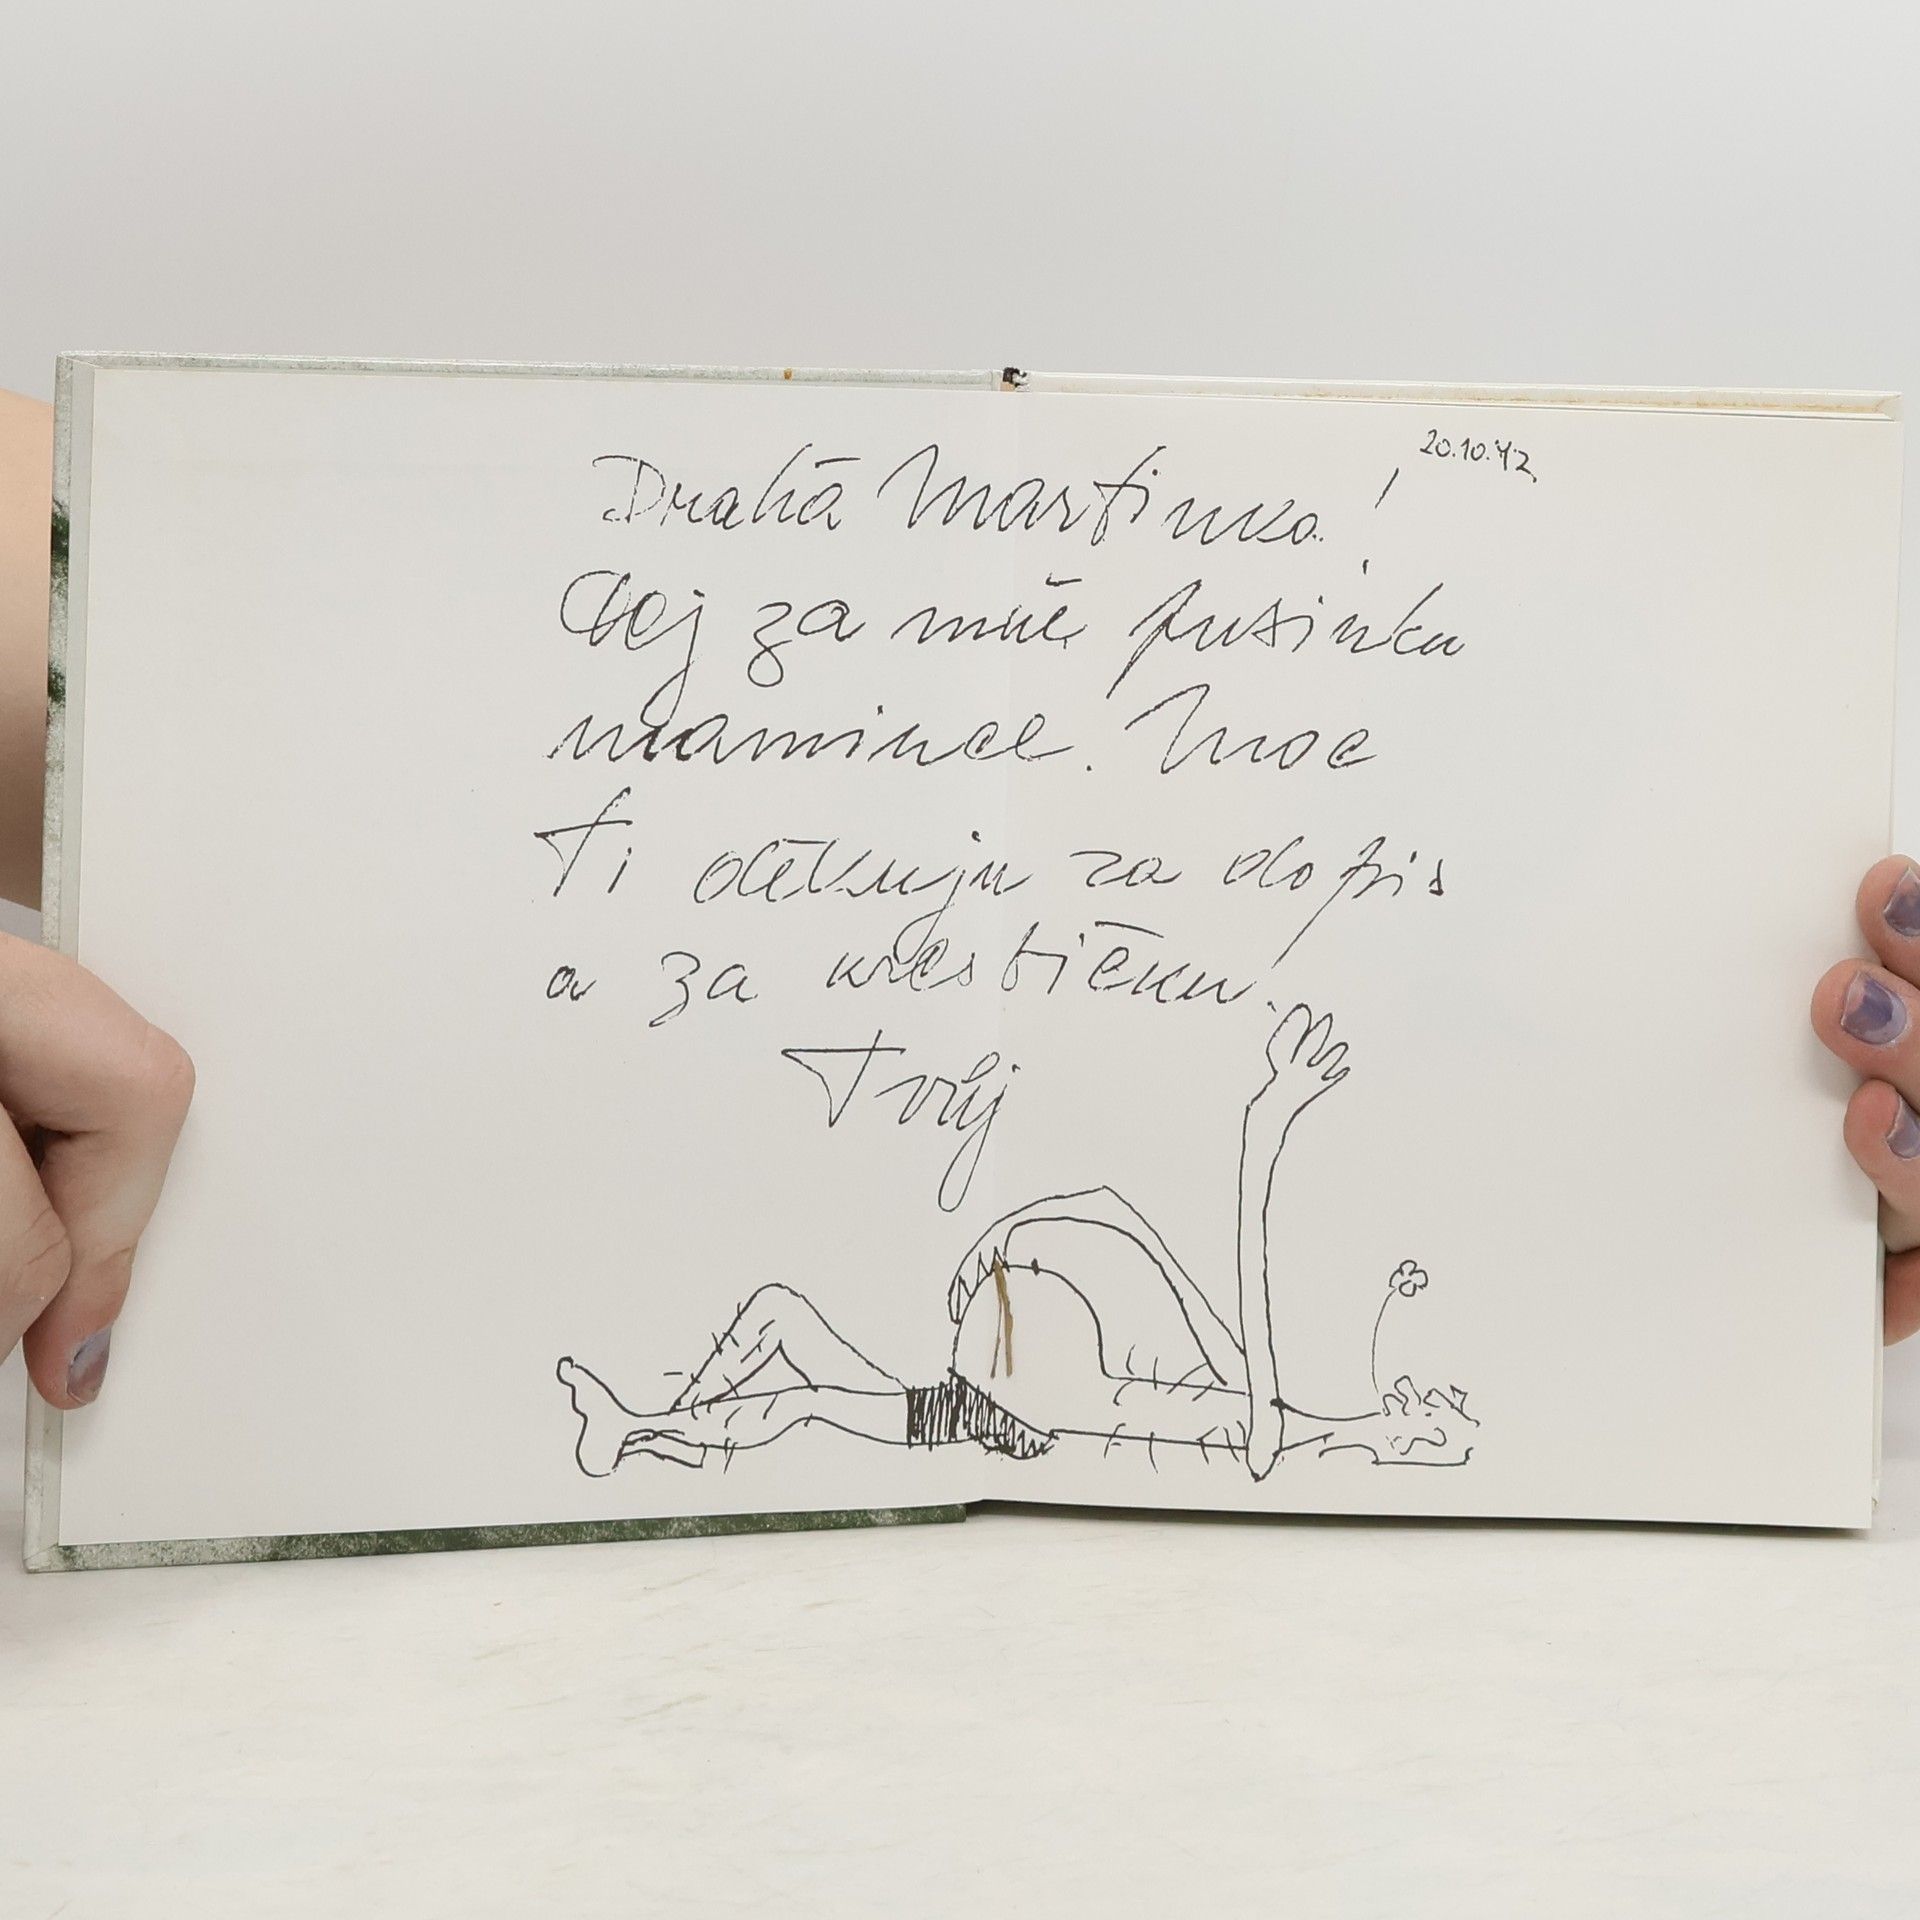 20.10.42
Drahá Martinko!
Dej za mně pusinku
mamince. Moc
Ti děkuju za dopis
a za kresbičku.
Tvůj